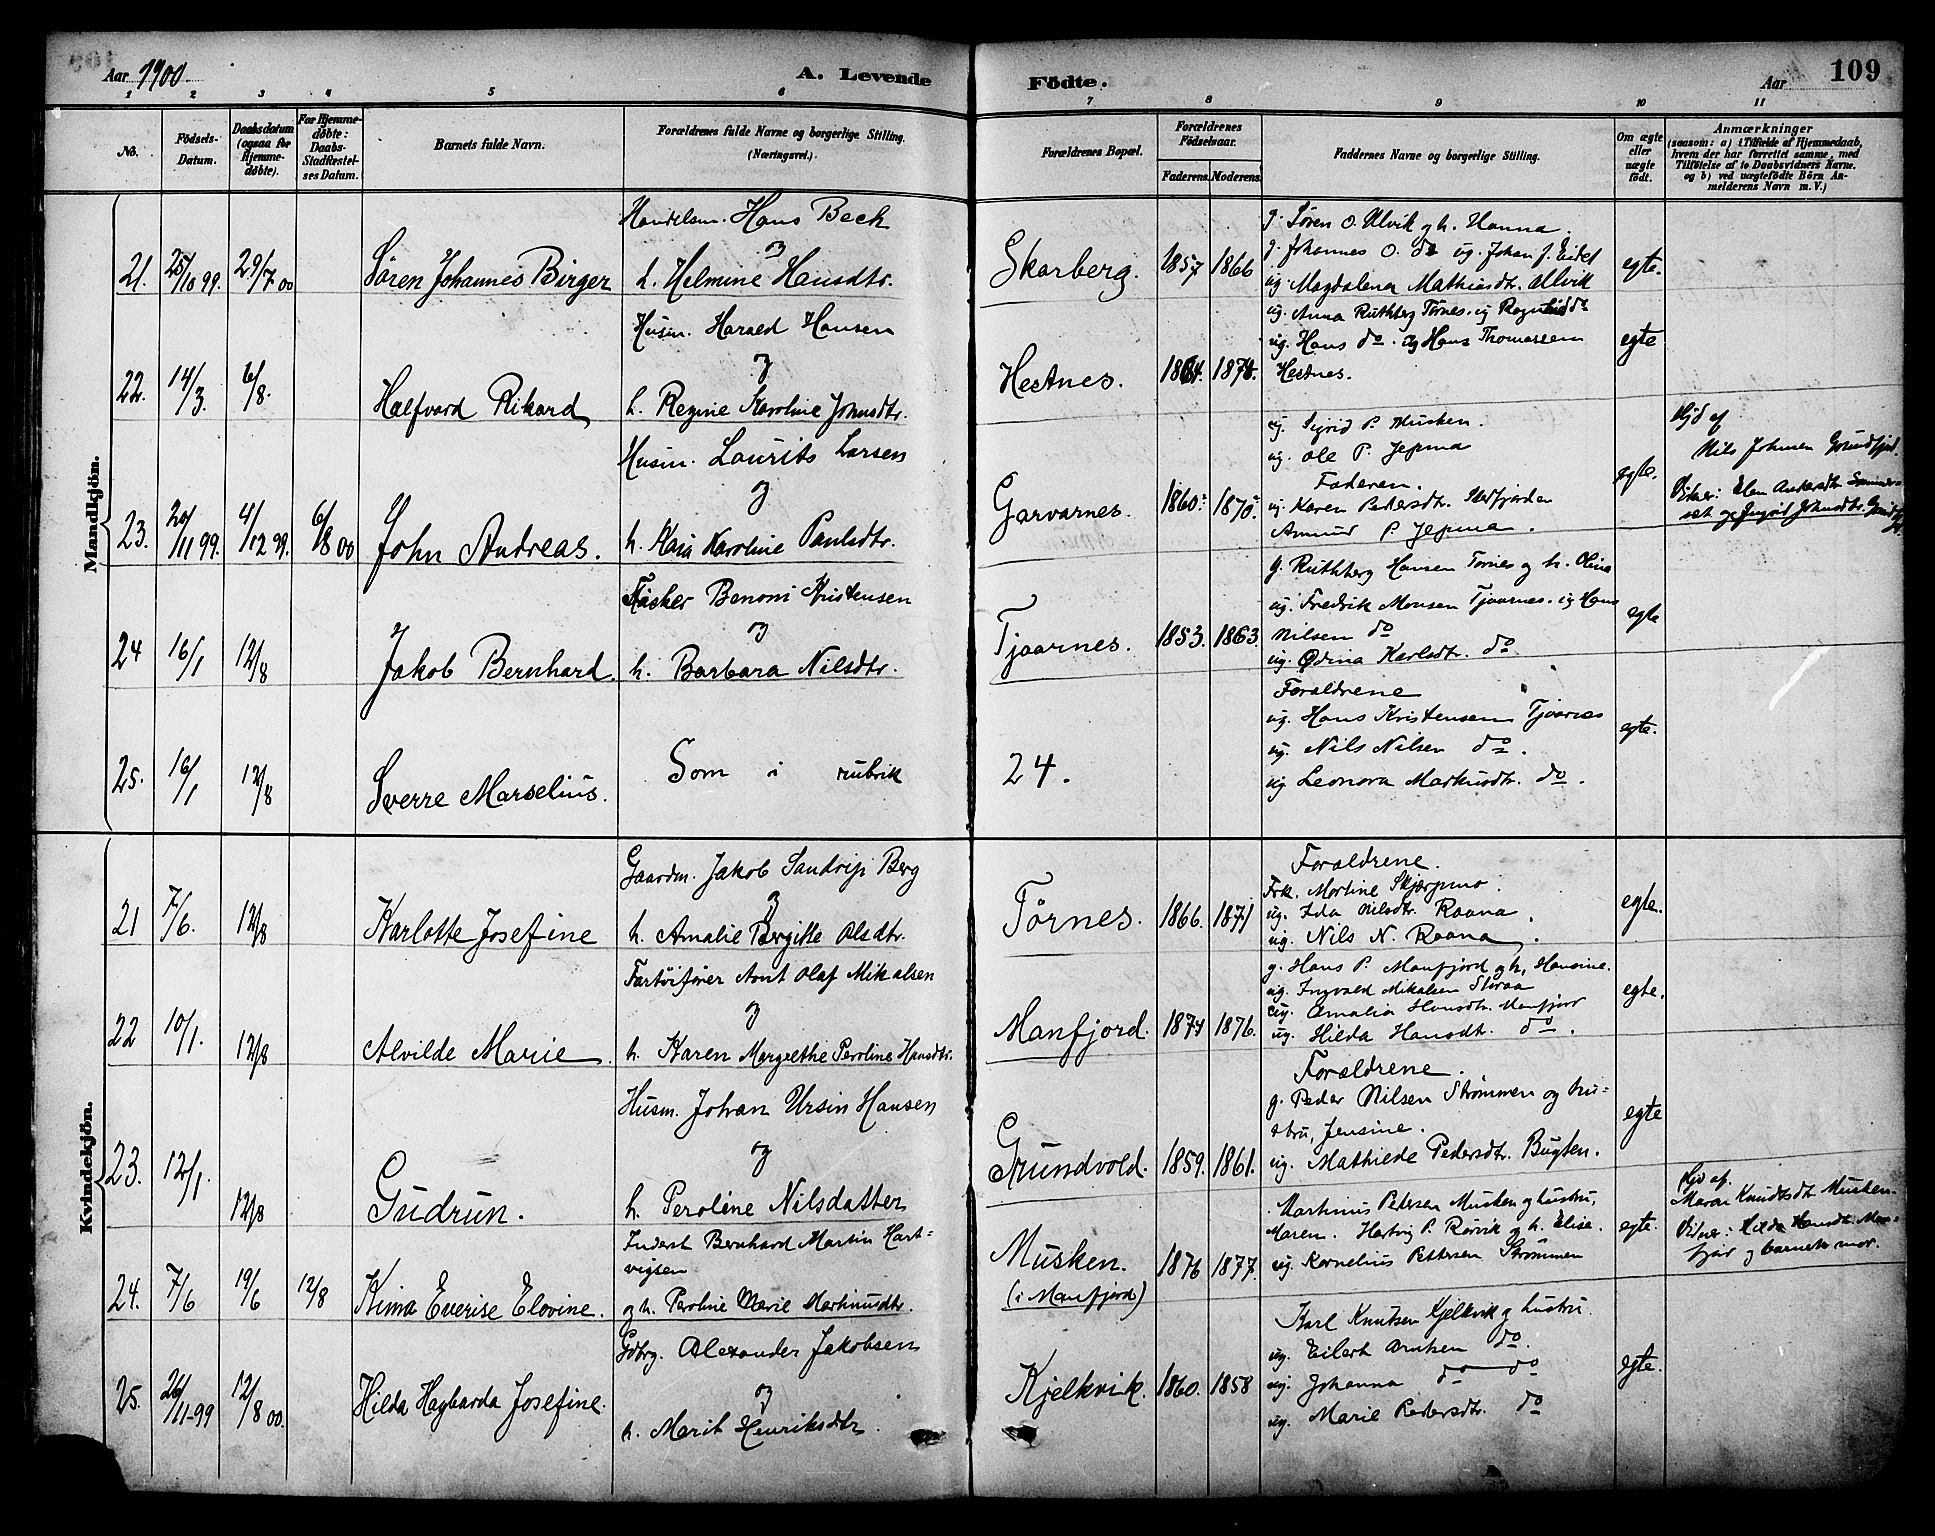 Aar 1900.
A. Levende
Födte.
Aar
109
1 2 3 4 5 6 7 8 9 10 11
No.
Födsels-Datum.
Daabsdatum (ogsaa for Hjemme-døbte).
For Hjemme-døbte: Daabs-Stadfæstel-ses Datum.
Barnets fulde Navn.
Forældrenes fulde Navne og borgerlige Stilling.
(Næringsvei.)
Forældrenes Bopæl.
Forældrenes Födselsaar.
Faderens. Moderens.
Faddernes Navne og borgerlige Stilling.
Om ægte eller uægte födt.
Anmærkninger
(saasom: a) i Tilfælde af Hjemmedaab, hvem der har forrettet samme, med Tilföielse af to Daabsvidners Navne. og b) ved uægtefödte Börn An-melderens Navn m. V.)
Mandkjön.
21. 25/10 99. 29/7 00 Søren Johannes Birger
Handelsm. Hans Beck
og
h. Helmine Hansdtr.
Skarberg. 1857 1866
g. Søren O. Ulvik og h. Hanna.
g. Johannes O. do ug. Johan J. Eidet
ug. Magdalena Mathiasdtr. Ulvik
egte.
22. 14/3. 6/8. Halfvard Rikard
Husm. Harald Hansen
og
h. Regine Karoline Johnsdtr.
Hestnes. 1864. 1874.
ug. Anna Ruthberg Tørnes. ug Ragnhild do
ug. Hans do. og Hans Thomassen
Hestnes.
egte
23. 20/11 99. 4/12 99. 6/8 00 John Andreas.
Husm. Laurits Larsen
og
h. Kaia Karoline Paulsdtr.
Garvarnes. 1860. 1870.
ug. Sigrid P. Musken.
ug. Ole P. Jepma
Faderen.
ug. Karen Pedersdtr.
Amund P. Jepma.
egte.
Hjd af
Nils Johnsen Grundfjord.
Vidner: Elen Andersdtr. Sommer-
set og Ingrid Johnsdtr.
24 16/1 12/8 Jakob Bernhard.
Fisker Benoni Kristensen
og
h. Barbara Nilsdtr.
Tjaarnes. 1853. 1863.
g. Ruthberg Hansen Tørnes og h. Olina
ug. Fredrik Monsen Tjaarnes. ug Hans
Nilsen do
ug. Ødina Karlsdtr. do.
egte
25. 16/1 12/8 Sverre Marselius.
Som i rubrik 24.
Foraldrene
ug. Hans Kristensen Tjaarnes
ug. Nils Nilsen do.
ug Leonora Markusdtr. do.
egte.
Kvindekjön.
21 7/6. 12/8 Karlotte Josefine
Gaardm. Jakob Sandrip Berg
og
h. Amalie Bergitte Olsdtr.
Tørnes. 1866. 1871
Foraldrene.
Frk. Martine Skjærpmo.
ug. Ida Nilsdtr. Raana.
ug. Nils N. Raana.
egte.
22 10/1. 12/8 Alvilde Marie.
Fartøifører Arnt Olaf Mikalsen
og
h. Karen Margrethe Peroline Hansdtr.
Manfjord. 1874 1876.
g. Hans P. Manfjord og h, Hansine.
ug. Ingvald Mikalsen
ug. Amalia Hansdtr. Manfjord
ug. Hilda Hansdt. do.
egte.
23. 12/1. 12/8 Gudrun.
Husm. Johan Ursin Hansen
og
h. Peroline Nilsdatter
Grundvold. 1859. 1861.
Foraldrene.
g. Peder Nilsen Strømmen og hu-
stru, Jensine.
ug. Mathilde Pedersdtr. Bugten.
egte
24. 7/6 19/6 12/8 Kima Everise Elovine.
Inderst Bernhard Martin Hart-
vigsen
og h. Peroline Marie Martinusdtr.
Musken. (i Manfjord) 1876 1877.
Martinus Petersen Musken og hustru,
Maren. Hartvig P. Rørvik og h. Elise.
ug. Kornelius Pettersen Strømmen
egte.
Hjd af.
Maran Knudtsdtr. Musken.
Vidner: Hilda Hansdtr. Man-
fjord og barnets mor.
25. 26/11-99 12/8 00. Hilda Hagbarda Josefine.
Gdbrg. Alexander Jakobsen
og
h. Marit Henriksdtr.
Kjelkvik. 1860. 1858
Karl Knutsen Kjelkvik og hustru.
ug. Eilert Arntsen do.
ug. Johanna do do
ug. Marie Pedersdtr. do
egte.